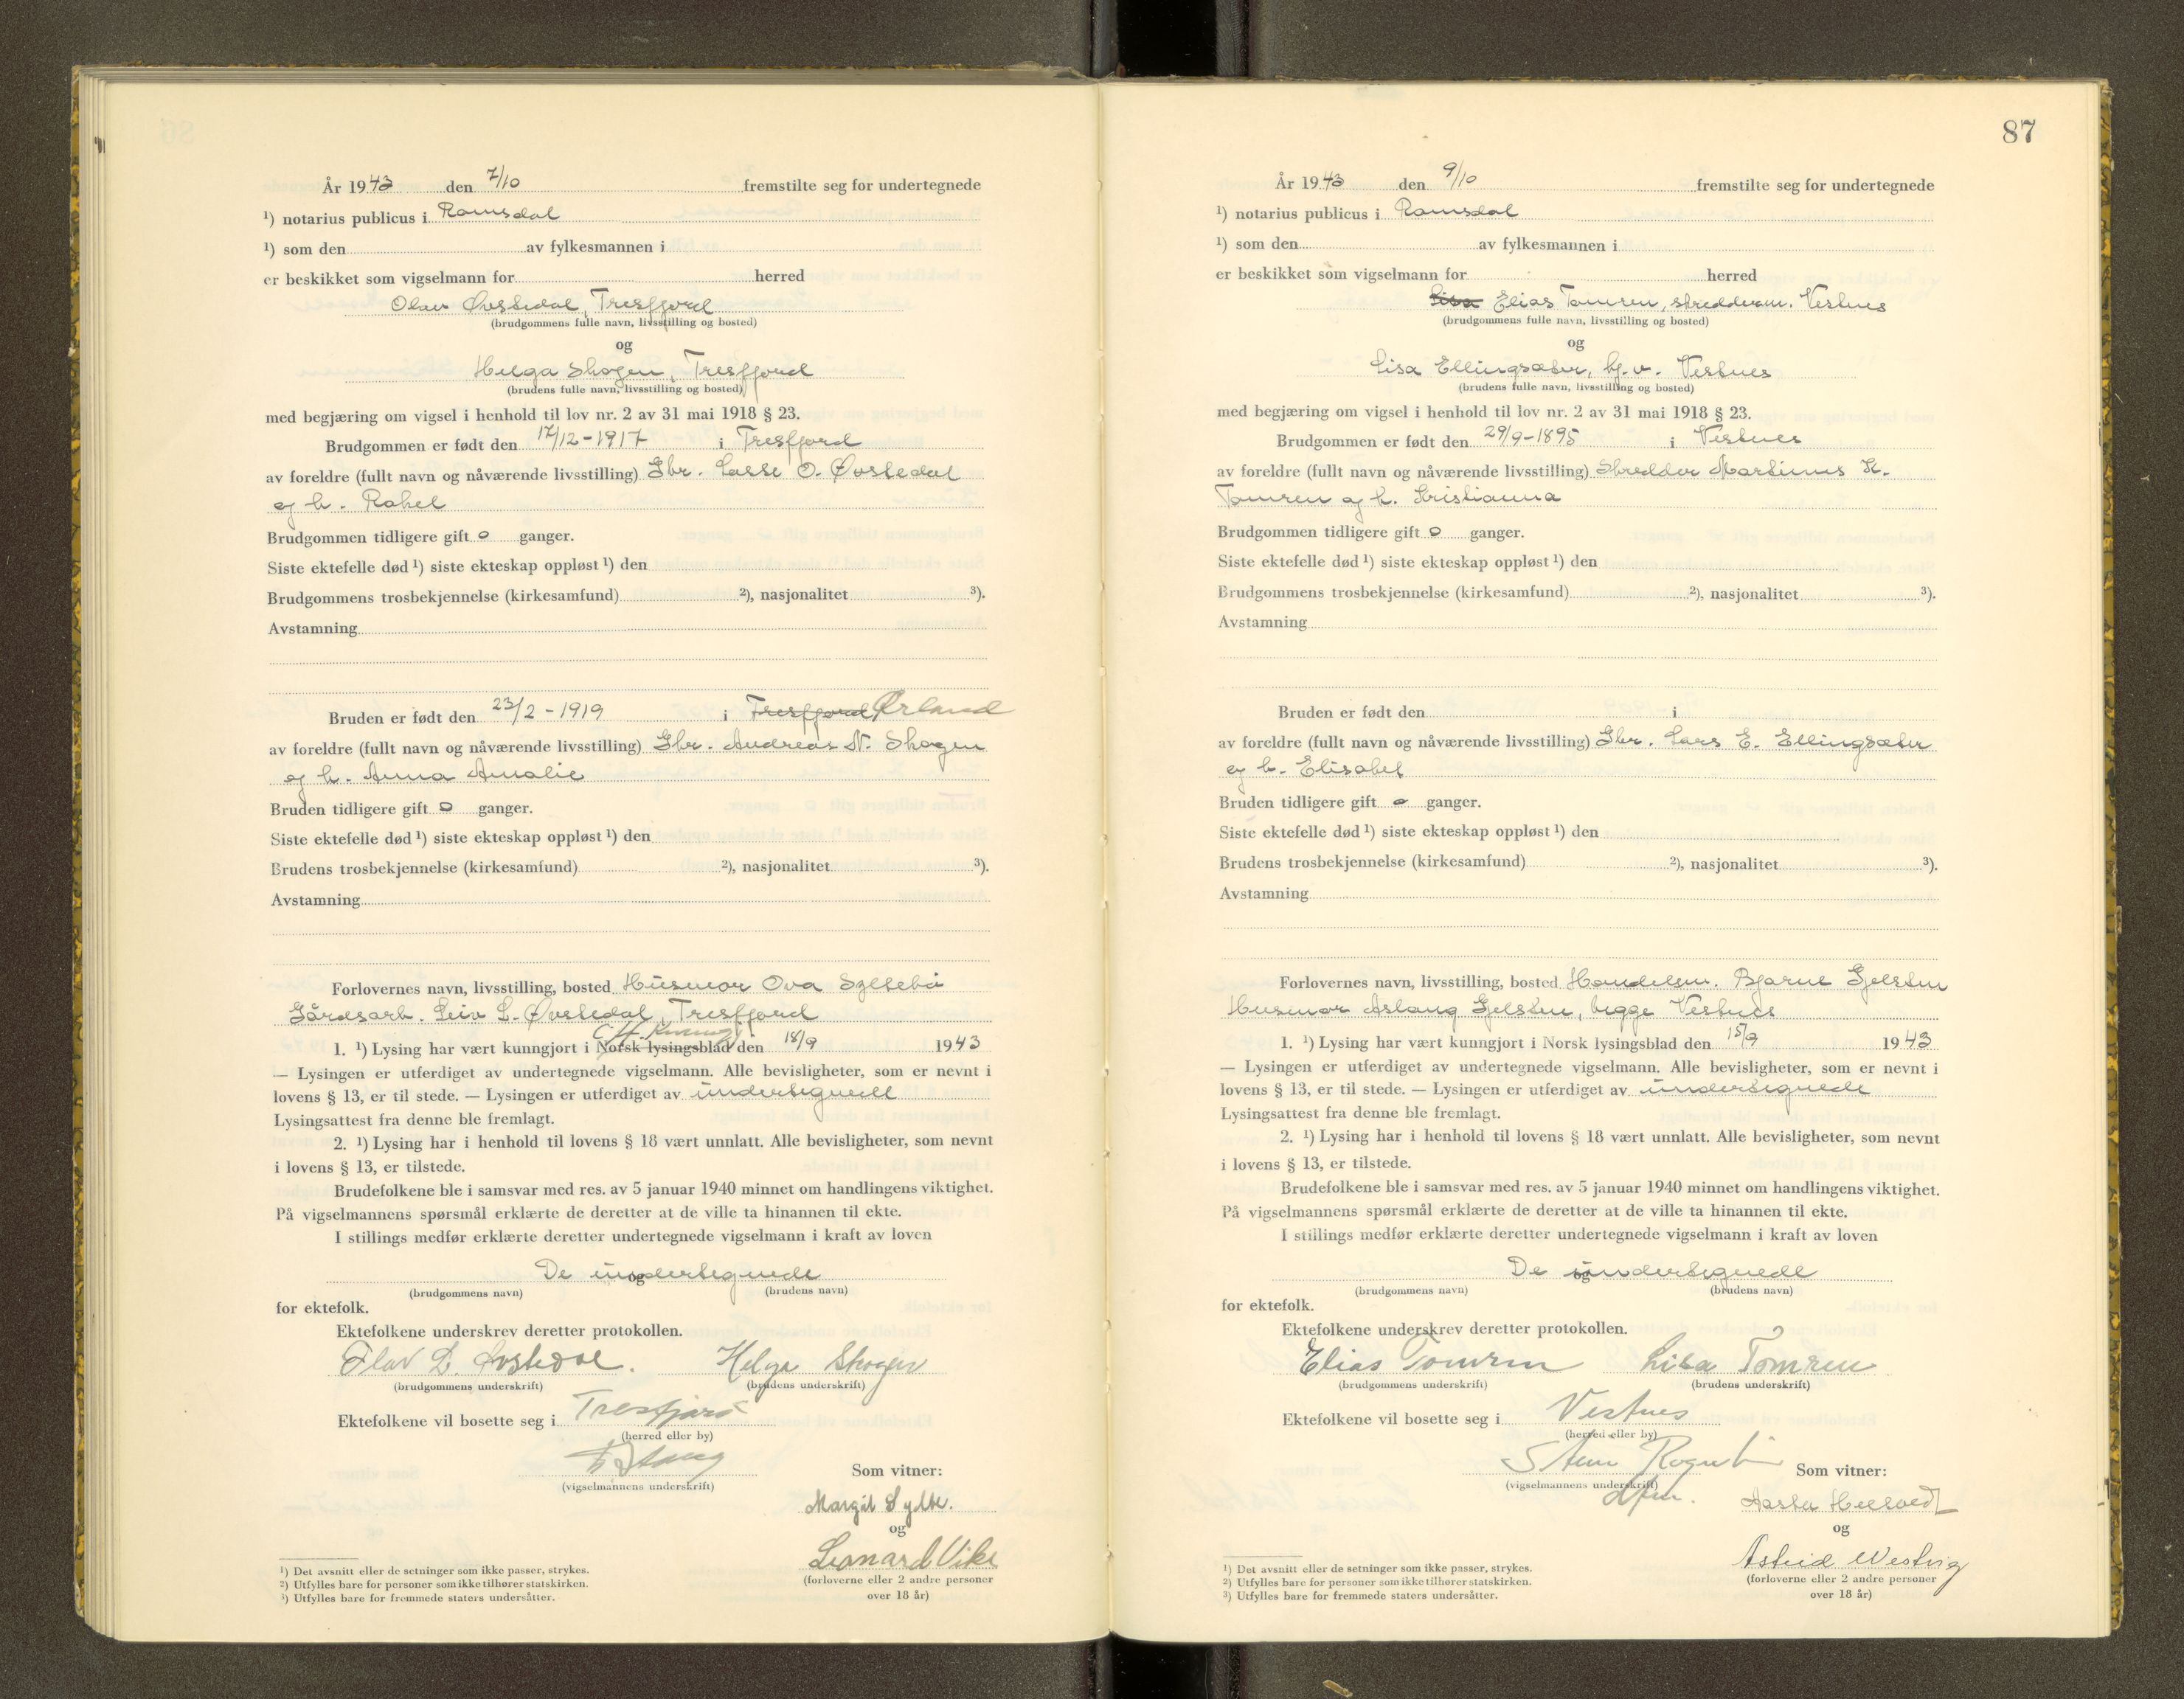 År 1943 den 7/10 fremstilte seg for undertegnede
¹) notarius publicus i Romsdal
¹) som den av fylkesmannen i
er beskikket som vigselmann for herred
Olav Øvstedal, Tresfjord
(brudgommens fulle navn, livsstilling og bosted)
og
Helga Skogen, Tresfjord
(brudens fulle navn, livsstilling og bosted)
med begjæring om vigsel i henhold til lov nr. 2 av 31 mai 1918 § 23.
Brudgommen er født den 17/12-1917 i Tresfjord
av foreldre (fullt navn og nåværende livsstilling) Gbr. Lasse O. Øvstedal
og h. Rakel
Brudgommen tidligere gift 0 ganger.
Siste ektefelle død ¹) siste ekteskap oppløst ¹) den
Brudgommens trosbekjennelse (kirkesamfund) ²), nasjonalitet ³).
Avstamning
Bruden er født den 23/2-1919 i Tresfjord Ørland
av foreldre (fullt navn og nåværende livsstilling) Gbr. Andreas N. Skogen
og h. Anna Amalie
Bruden tidligere gift 0 ganger.
Siste ektefelle død ¹) siste ekteskap oppløst ¹) den
Brudens trosbekjennelse (kirkesamfund) ²), nasjonalitet ³).
Avstamning
Forlovernes navn, livsstilling, bosted Husmor Ova Syltebø
Gårdsarb. Leiv L. Øvstedal, Tresfjord
1. ¹) Lysing har vært kunngjort i Norsk lysingsblad den 18/9 1943
— Lysingen er utferdiget av undertegnede vigselmann. Alle bevisligheter, som er nevnt i
lovens § 13, er til stede. — Lysingen er utferdiget av undertegnede
Lysingsattest fra denne ble fremlagt.
2. ¹) Lysing har i henhold til lovens § 18 vært unnlatt. Alle bevisligheter, som nevnt
i lovens § 13, er tilstede.
Brudefolkene ble i samsvar med res. av 5 januar 1940 minnet om handlingens viktighet.
På vigselmannens spørsmål erklærte de deretter at de ville ta hinannen til ekte.
I stillings medfør erklærte deretter undertegnede vigselmann i kraft av loven
De undertegnede
og
(brudgommens navn) (brudens navn)
for ektefolk.
Ektefolkene underskrev deretter protokollen.
Olav L. Øvstedal. Helga Skogen
(brudgommens underskrift) (brudens underskrift)
Ektefolkene vil bosette seg i Tresfjord
(herred eller by)
(vigselmannens underskrift)
Som vitner:
Margit Sylte.
og
Leonard Vike
(forloverne eller 2 andre personer
over 18 år)
¹) Det avsnitt eller de setninger som ikke passer, strykes.
²) Utfylles bare for personer som ikke tilhører statskirken.
³) Utfylles bare for fremmede staters undersåtter.
87
År 1943 den 9/10 fremstilte seg for undertegnede
¹) notarius publicus i Romsdal
¹) som den av fylkesmannen i
er beskikket som vigselmann for herred
Lisa Elias Tomren, skredderm. Vestnes
(brudgommens fulle navn, livsstilling og bosted)
og
Lisa Ellingsæter, hj.v. Vestnes
(brudens fulle navn, livsstilling og bosted)
med begjæring om vigsel i henhold til lov nr. 2 av 31 mai 1918 § 23.
Brudgommen er født den 29/9-1895 i Vestnes
av foreldre (fullt navn og nåværende livsstilling) Skredder Martinus K.
Tomren og h. Kristianna
Brudgommen tidligere gift 0 ganger.
Siste ektefelle død ¹) siste ekteskap oppløst ¹) den
Brudgommens trosbekjennelse (kirkesamfund) ²), nasjonalitet ³).
Avstamning
Bruden er født den i
av foreldre (fullt navn og nåværende livsstilling) Gbr. Lars E. Ellingsæter
og h. Elisabet
Bruden tidligere gift 0 ganger.
Siste ektefelle død ¹) siste ekteskap oppløst ¹) den
Brudens trosbekjennelse (kirkesamfund) ²), nasjonalitet ³).
Avstamning
Forlovernes navn, livsstilling, bosted Handelsm. Bjarne Gjelsten
Husmor Aslaug Gjelsten, begge Vestnes
1. ¹) Lysing har vært kunngjort i Norsk lysingsblad den 15/9 1943
— Lysingen er utferdiget av undertegnede vigselmann. Alle bevisligheter, som er nevnt i
lovens § 13, er til stede. — Lysingen er utferdiget av undertegnede
Lysingsattest fra denne ble fremlagt.
2. ¹) Lysing har i henhold til lovens § 18 vært unnlatt. Alle bevisligheter, som nevnt
i lovens § 13, er tilstede.
Brudefolkene ble i samsvar med res. av 5 januar 1940 minnet om handlingens viktighet.
På vigselmannens spørsmål erklærte de deretter at de ville ta hinannen til ekte.
I stillings medfør erklærte deretter undertegnede vigselmann i kraft av loven
De undertegnede
og
(brudgommens navn) (brudens navn)
for ektefolk.
Ektefolkene underskrev deretter protokollen.
Elias Tomren Lisa Tomren
(brudgommens underskrift) (brudens underskrift)
Ektefolkene vil bosette seg i Vestnes
(herred eller by)
(vigselmannens underskrift)
Som vitner:
og
Astrid Westvig
(forloverne eller 2 andre personer
over 18 år)
¹) Det avsnitt eller de setninger som ikke passer, strykes.
²) Utfylles bare for personer som ikke tilhører statskirken.
³) Utfylles bare for fremmede staters undersåtter.